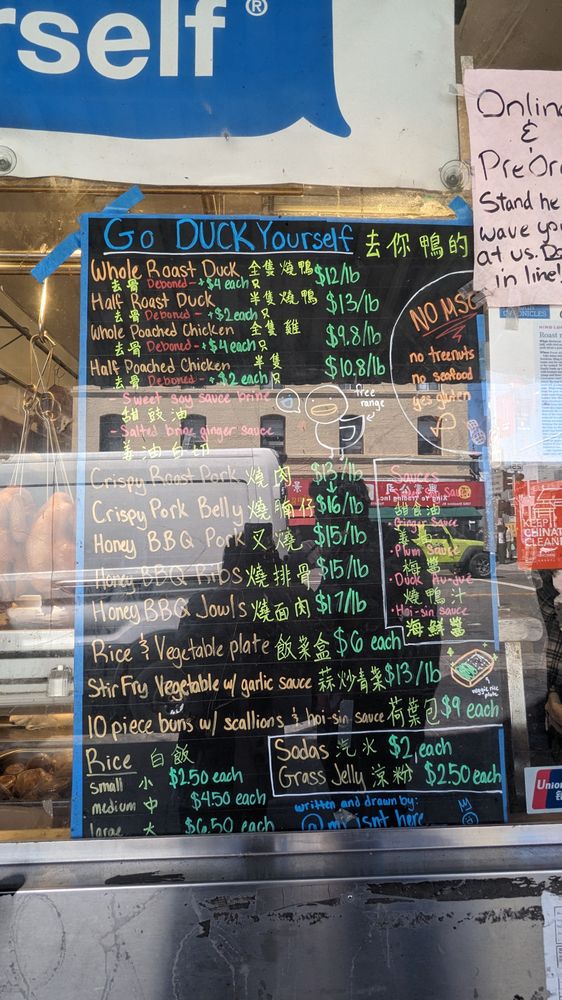 rself®
Online
&
PreOr
Stand he
wave yo
at us. Do
in line!
Go DUCK Yourself 去你鴨的
Whole Roast Duck 全隻燒鴨 $12/lb
去骨 Deboned - +$4 each 只
Half Roast Duck 半隻燒鴨 $13/lb
去骨 Deboned - +$2 each 只
Whole Poached Chicken 全隻雞 $9.8/lb
去骨 Deboned - +$4 each 只
Half Poached Chicken 半隻 $10.8/lb
去骨 Deboned - +$2 each 只
- Sweet soy sauce brine
甜豉油
- Salted brine ginger sauce
free range
NO MSG
no treenuts
no seafood
yes gluten
Crispy Roast Pork 燒肉 $13/lb
Crispy Pork Belly 燒腩仔 $16/lb
Honey BBQ Pork 叉燒 $15/lb
Honey BBQ Ribs 燒排骨 $15/lb
Honey BBQ Jowls 燒面肉 $17/lb
Sauces
甜豉油
Ginger Sauce
• Plum Sauce
梅醬
• Duck Au-jue
燒鴨汁
• Hoi-sin sauce
海鮮醬
Rice & Vegetable plate 飯菜盒 $6 each
Stir Fry Vegetable w/ garlic sauce 蒜炒青菜 $13/lb
veggie rice plate
10 piece buns w/ scallions & hoi-sin sauce 荷葉包 $9 each
Rice 白飯
small 小 $2.50 each
medium 中 $4.50 each
large 大 $6.50 each
Sodas 汽水 $2 each
Grass Jelly 涼粉 $2.50 each
written and drawn by:
@mr.isnt.here
KEEP
CHINAT
CLEAN
Union